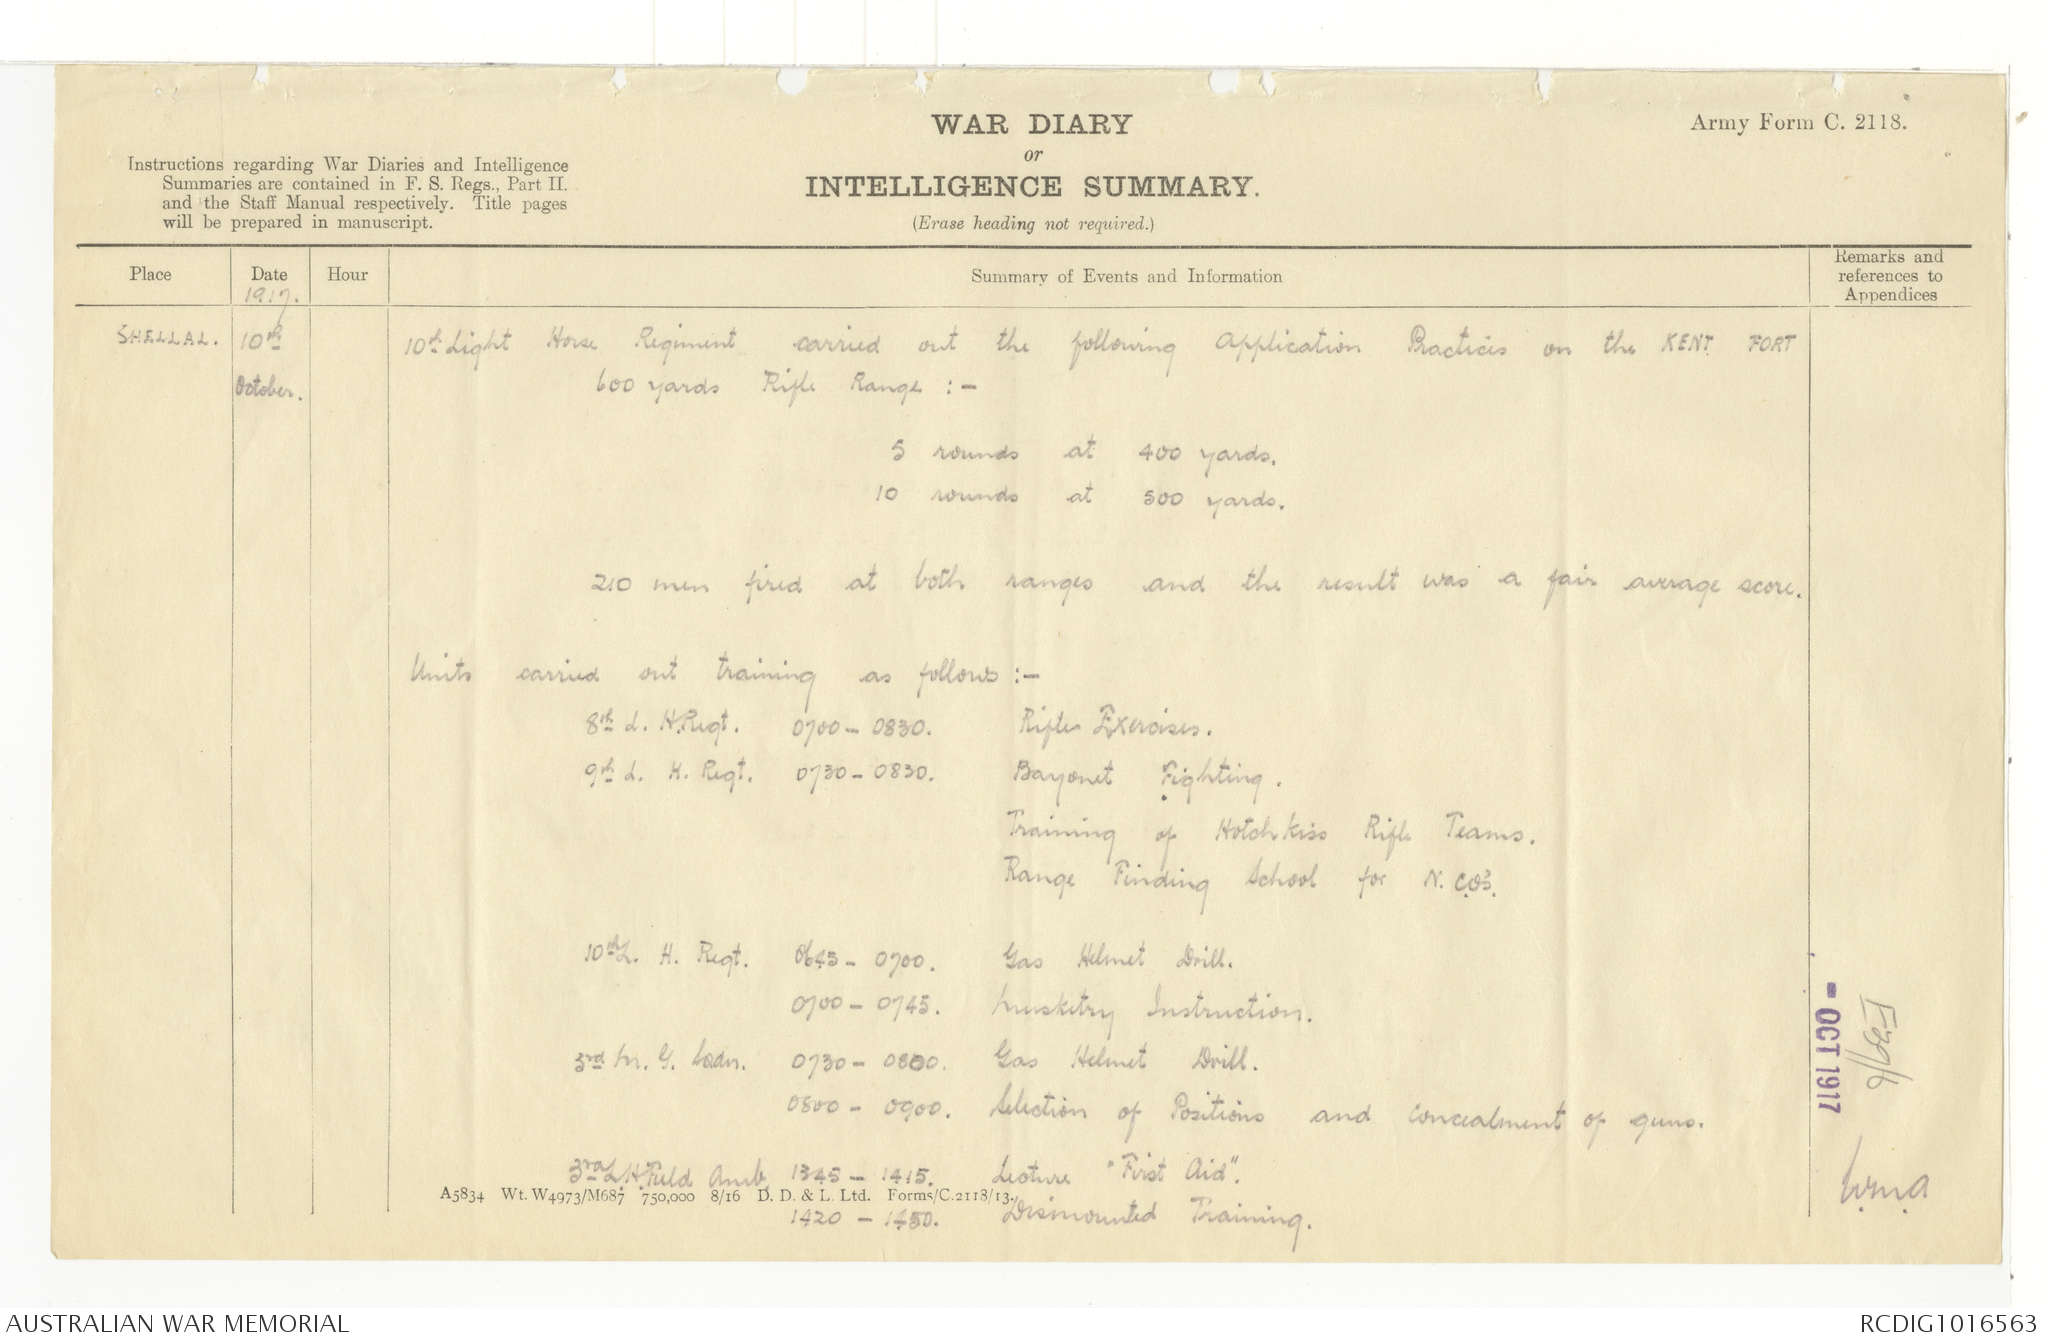 WAR DIARY
or
INTELLIGENCE SUMMARY.
(Erase heading not required.)
Army Form C. 2118.
Instructions regarding War Diaries and Intelligence
Summaries are contained in F. S. Regs., Part II.
and the Staff Manual respectively. Title pages
will be prepared in manuscript.
Place Date Hour Summary of Events and Information Remarks and references to Appendices
1917.
SHELLAL. 10th October. 10th Light Horse Regiment carried out the following Application Practices on the KENT FORT
600 yards Rifle Range :-
5 rounds at 400 yards.
10 rounds at 500 yards.
210 men fired at both ranges and the result was a fair average score.
Units carried out training as follows :-
8th L. H. Regt. 0700 - 0830. Rifle Exercises.
9th L. H. Regt. 0730 - 0830. Bayonet Fighting.
Training of Hotchkiss Rifle Teams.
Range Finding School for N.C.O's.
10th L. H. Regt. 0645 - 0700. Gas Helmet Drill.
0700 - 0745. Musketry Instruction.
3rd M. G. Sqdn. 0730 - 0800. Gas Helmet Drill.
0800 - 0900. Selection of Positions and Concealment of guns.
3rd L.H. Field Amb. 1345 - 1415. Lecture "First Aid".
1420 - 1450. Dismounted Training.
A5834 Wt. W4973/M687 750,000 8/16 D. D. & L. Ltd. Forms/C.2118/13.
- OCT 1917
AUSTRALIAN WAR MEMORIAL
RCDIG1016563